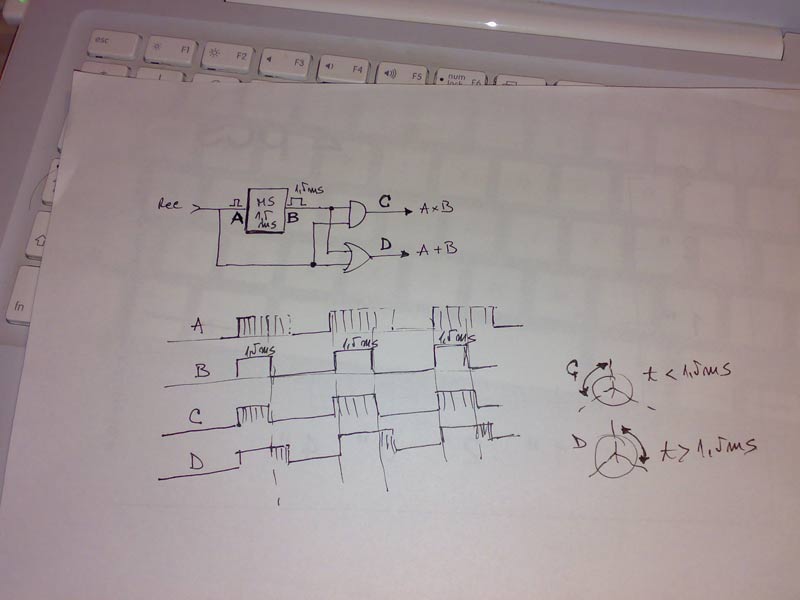 esc
F1
F2
F3
F4
F5
num lock F6
fn
Rec
A
MS
1,5
ms
B
1,5ms
C
A×B
D
A+B
A
B
1,5ms
1,5ms
1,5ms
C
D
C
t < 1,5ms
D
t > 1,5ms